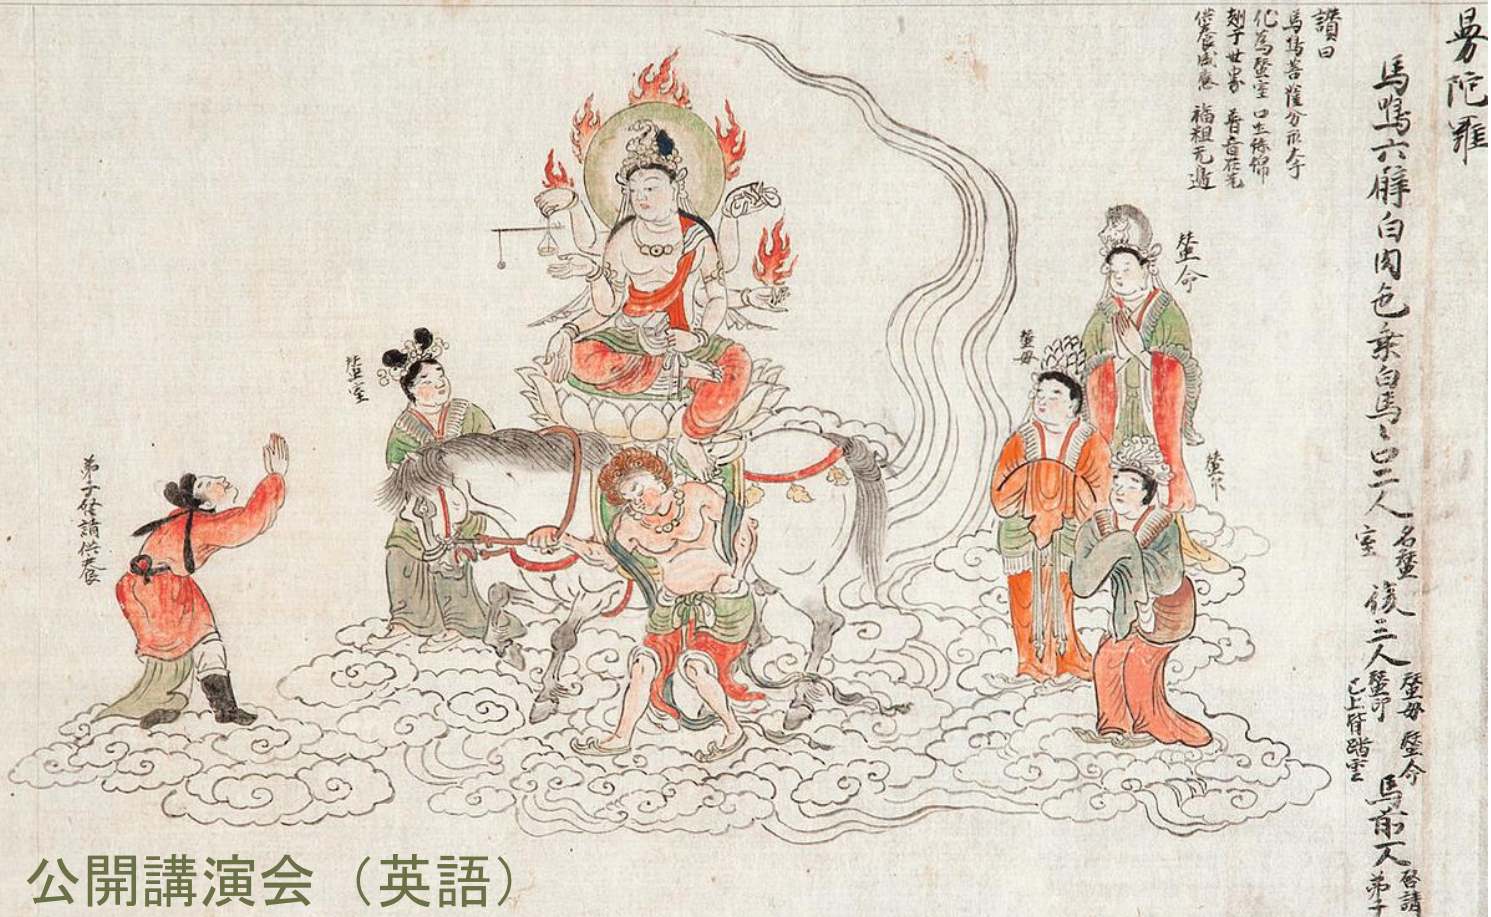 曼陀羅
馬鳴六臂白肉色乗白馬〻口二人
名蠶
室
後三人
蠶母 蠶命
蠶印
已上皆踏雲
馬前一人
啓請
弟子
讃曰
馬鳴菩薩分形大千
化為蠶室口
世界 普
供養感應 福
蠶命
蠶母
蠶印
蠶室
弟子啓請供養
公開講演会（英語）